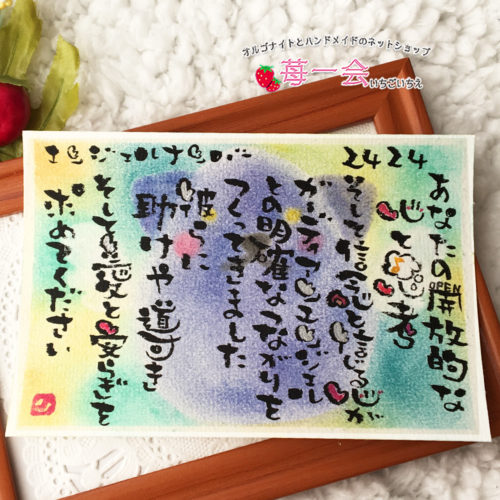 オルゴナイトとハンドメイドのネットショップ
苺一会
いちごいちえ
エンジェルナンバー
2424
あなたの開放的な
OPEN
心と思考
そして信念と信じる心が
ガーディアンエンジェル
との明確なつながりを
つくってきました
彼らに
助けや導き
そして愛と安らぎを
求めてください